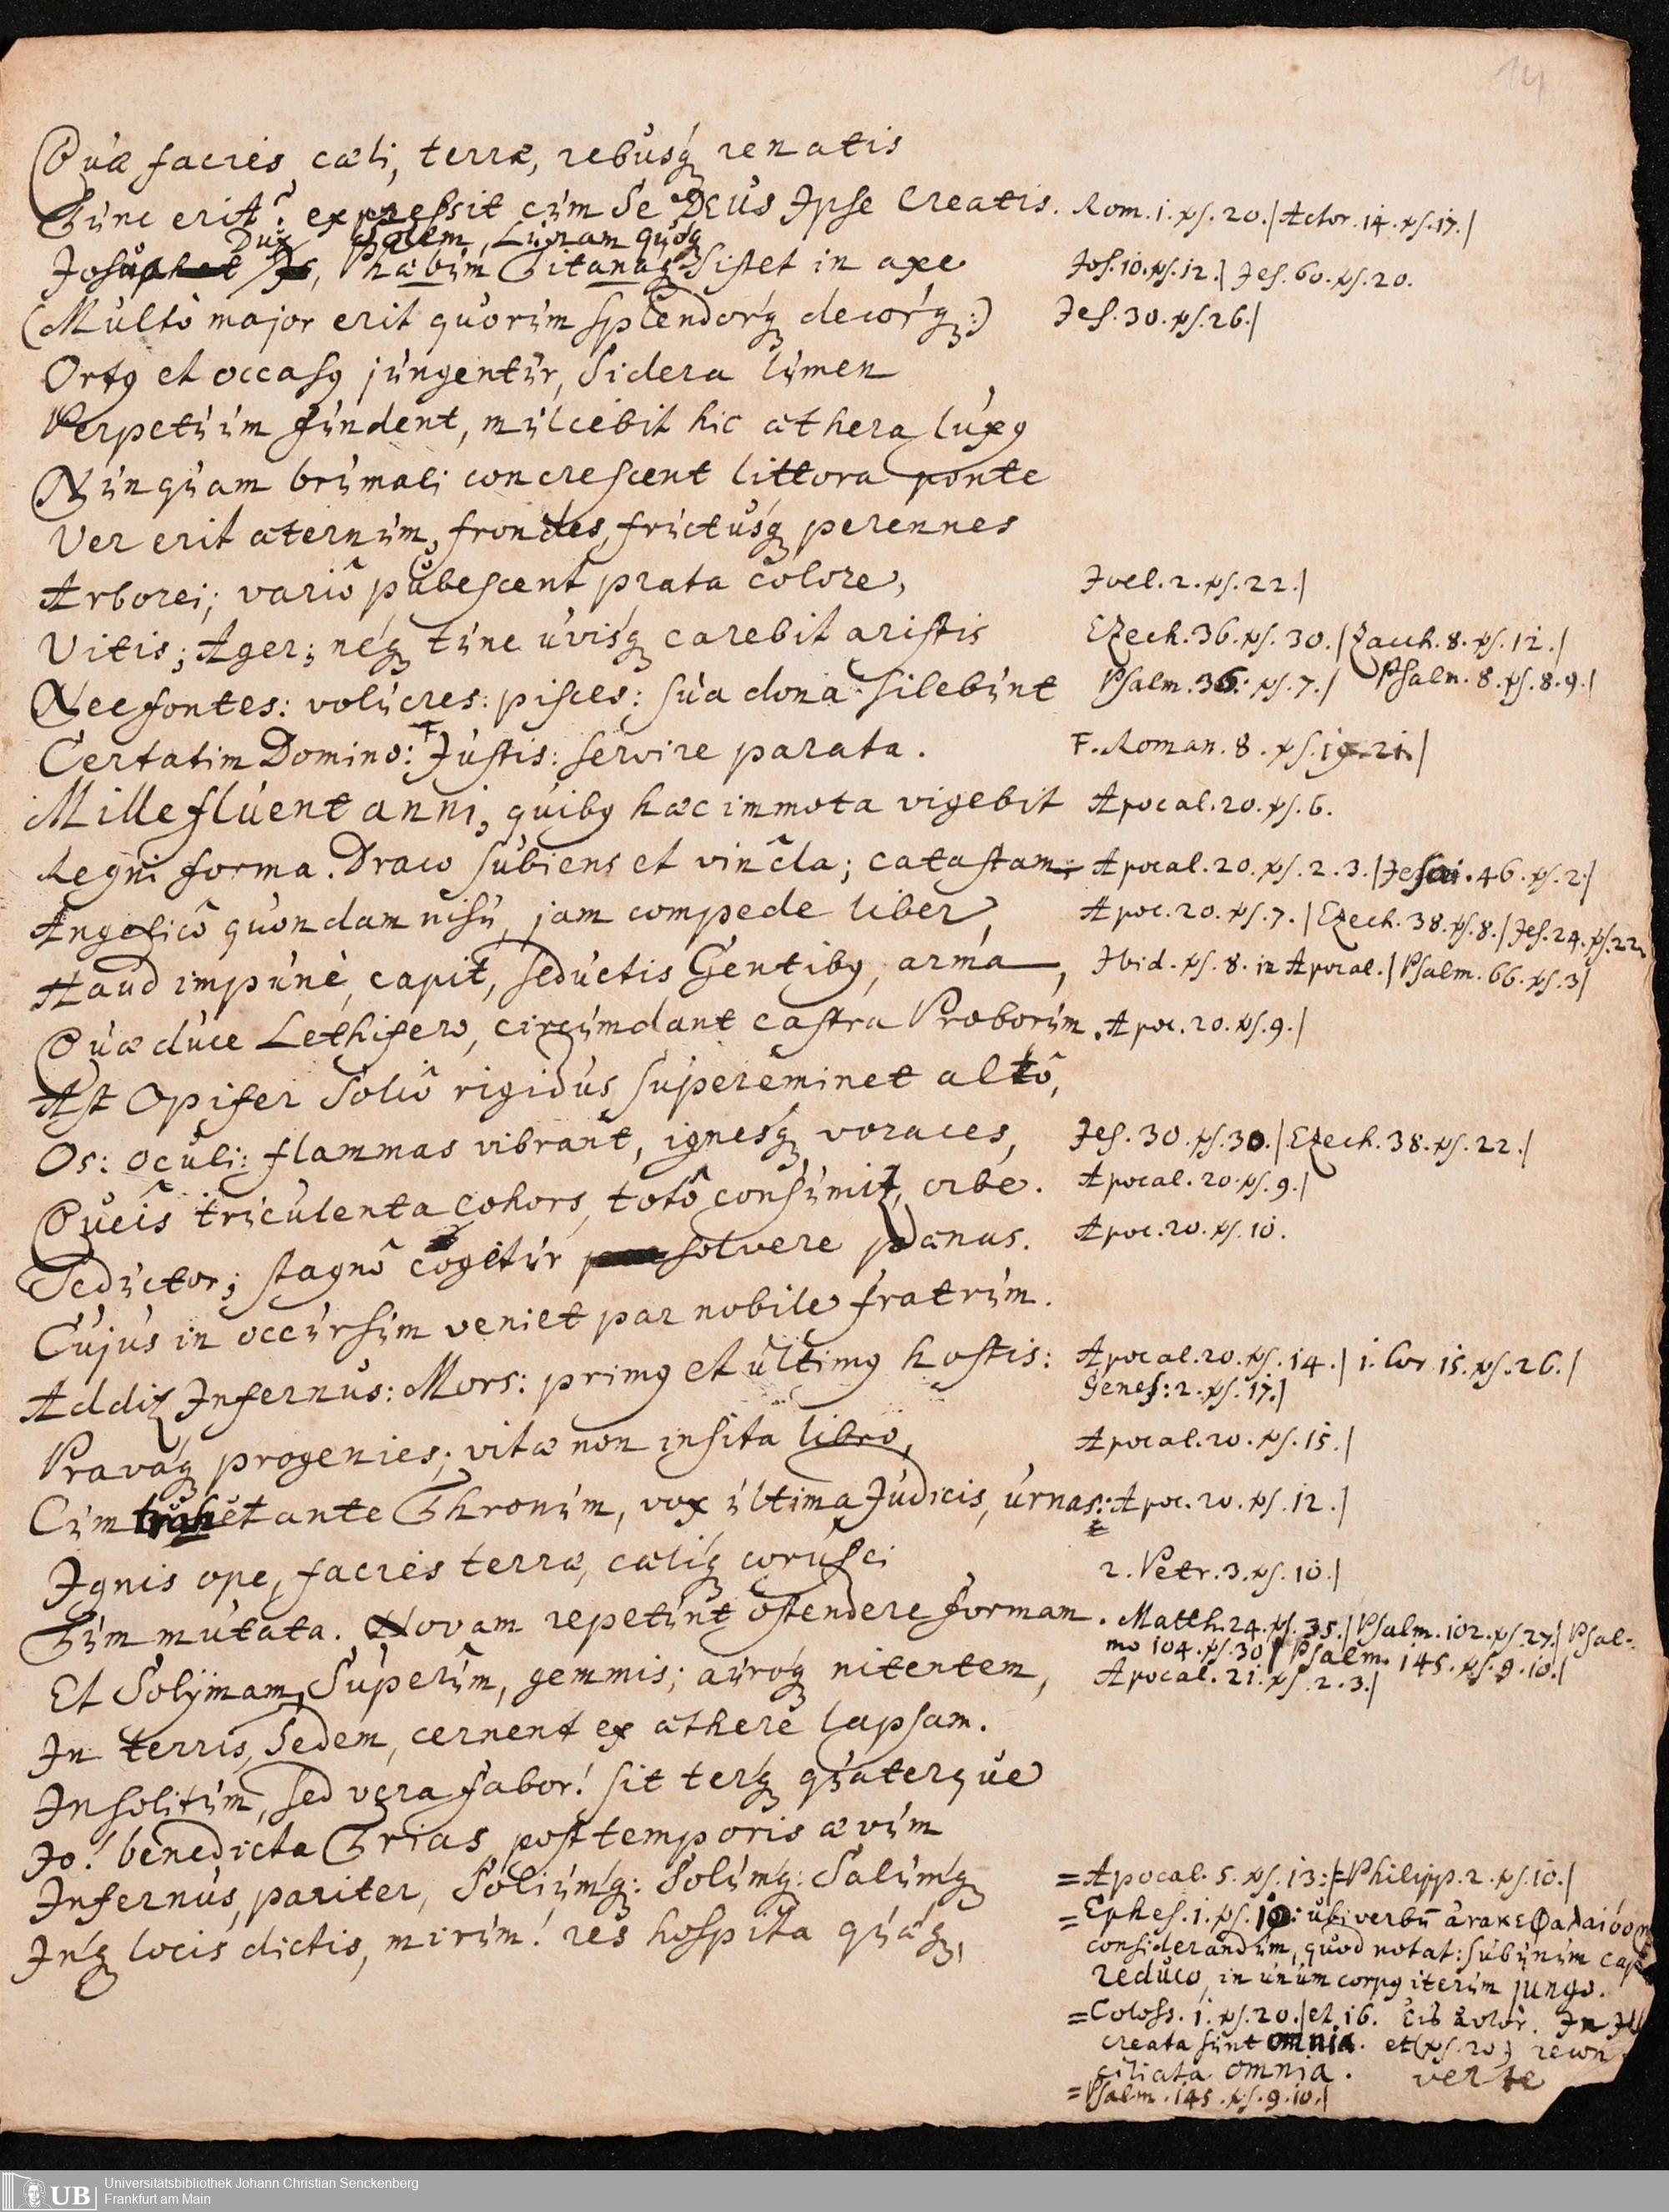 14
Quæ facies, cæli, terræ, rebúsq; renatis
Tunc erit? expressit cum Se DEUS Ipse Creatis. Rom. 1. vs. 20.| Actor. 14. vs. 17.|
Dux Solem, Lunam quoq;
Josua, Phæbum Titanaq; Sistet in axe Jos. 10. vs. 12.| Jes. 60. vs. 20.
(Multò major erit quorum splendorq; decorq;:) Jes. 30. vs. 26.|
Ortq et occasq jungentur, Sidera lumen
Perpetuum fundent, mulcebit hic æthera luxq
Nunquam brumali concrescent littora ponte
Ver erit æternum, frondes, fructusq; perennes
Arborei; variô pubescent prata colore, Joel. 2. vs. 22.|
Vitis; Ager; neq; tunc uvisq; carebit aristis Ezech. 36. vs. 30.| Zach. 8. vs. 12.|
Nec fontes: volucres: pisces: sua dona silebunt Psalm. 36. vs. 7.| Psalm. 8. vs. 8. 9.|
Certatim Domino: F Justis: servire parata. F. Roman. 8. vs. 19. 21.|
Mille fluent anni, quibq hæc immota vigebit Apocal. 20. vs. 6.
Regni forma. Draco subiens et vincla; catastam; Apocal. 20. vs. 2. 3.| Jesai. 46. vs. 2.|
Angelicô quondam nisu, jam compede liber, Apoc. 20. vs. 7.| Ezech. 38. vs. 8.| Jes. 24. vs. 22.
Haud impunè, capit, seductis Gentibq, arma, Ibid. vs. 8. in Apocal.| Psalm. 66. vs. 3|
Quæ duce Lethifero, circumdant castra Proborum. Apoc. 20. vs. 9.|
Ast Opifer Soliô rigidus supereminet altô,
Os: oculi: flammas vibrant, ignesq; voraces, Jes. 30. vs. 30.| Ezech. 38. vs. 22.|
Queis truculenta cohors, totô consumitur, orbe. Apocal. 20. vs. 9.|
Seductor; stagnô cogetur solvere pænas. Apoc. 20. vs. 10.
Cujus in occursum veniet par nobile fratrum.
Additur Infernus: Mors: primq et ultimq hostis: Apocal. 20. vs. 14.| 1. Cor. 15. vs. 26.|
Genes: 2. vs. 17.|
Pravaq; progenies; vitæ non insita libro, Apocal. 20. vs. 15.|
Cum trahet ante Thronum, vox ultima Judicis, urnas: Apoc. 20. vs. 12.|
Ignis ope, facies terræ, cæliq; corusci 2. Petr. 3. vs. 10.|
Tum mutata. Novam repetunt ostendere formam. Matth. 24. vs. 35.| Psalm. 102. vs. 27.| Psal-
mo 104. vs. 30| Psalm. 145. vs. 9. 10.|
Et Solÿmam, Superûm, gemmis; auroq; nitentem, Apocal. 21. vs. 2. 3.|
In terris, Sedem, cernent ex æthere lapsam.
Insolitum, sed vera fabor! sit terq; quaterque
Jo! benedicta Trias post temporis ævum
Infernus, pariter, Soliumq;: Solumq;: Salumq; = Apocal. 5. vs. 13:|= Philipp. 2. vs. 10.|
Inq; locis dictis, mirum! res hospita quæq;,
= Ephes. 1. vs. 10: ubi verbũ
considerandum, quod notat: sub unum
reduco, in unum corpq iterum jungo.
= Coloss. 1. vs. 20.| et 16. In
creata sunt omnia. et (vs. 20) recon
ciliata omnia. verte
= Psalm. 145. vs. 9. 10.|
UB
Universitätsbibliothek Johann Christian Senckenberg
Frankfurt am Main